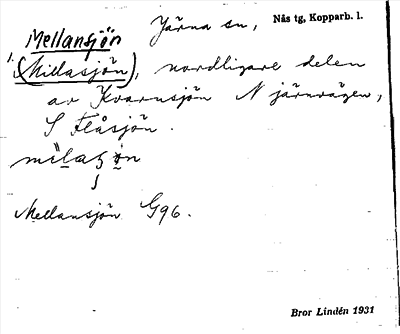 Mellansjön Järna sn, Nås tg, Kopparb. l.
1. (Millasjön), nordligare delen
av Kvarnsjön N järnvägen,
S Flåsjön.
Mellansjön G96.
Bror Lindén 1931